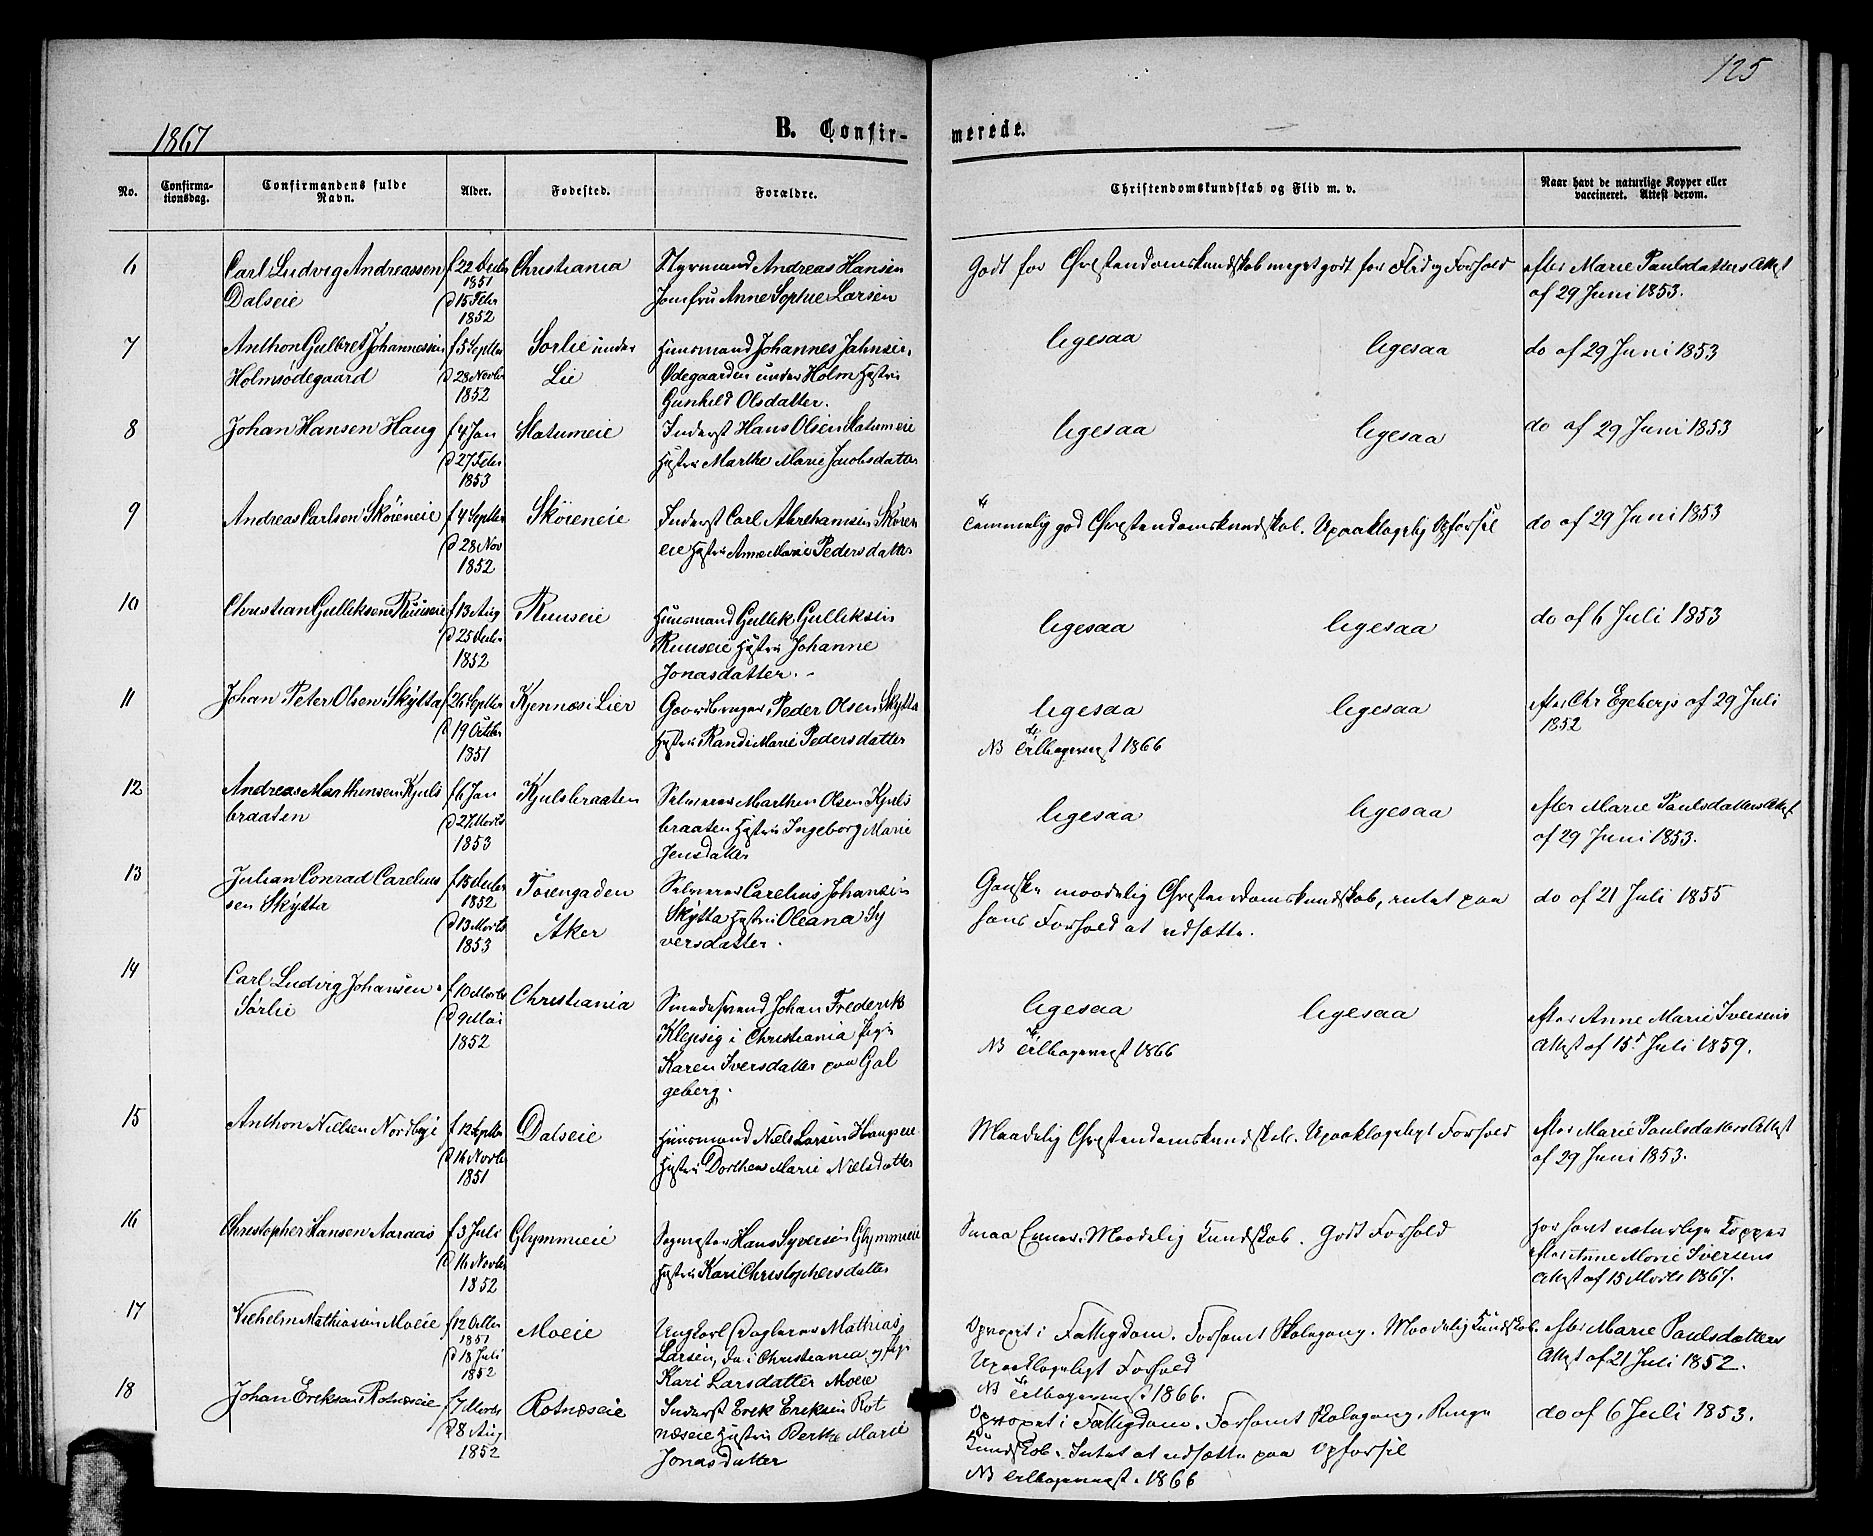 125
1867
B. Confir-
merede.
No.
Confirma-
tionsdag.
Confirmandens fulde
Navn.
Alder.
Fødested.
Forældre.
Christendomskundskab og Flid m. v.
Naar havt de naturlige Kopper eller
vaccineret. Attest derom.
6
Carl Ludvig Andreassen
Dalseie
f 22 Decbr
1851
d 15 Febr
1852
Christiania
Styrmand Andreas Hansen
Jomfru Anne Sophie Larsen
Godt for Christendomskundskab meget godt for Flid og Forhold
efter Marie Paulsdatters Attest
af 29 Juni 1853.
7
Anthon Gulbrd Johannessen
Holmsødegaard
f 5 Septbr
d 28 Novbr
1852
Sorlie under
Lie
Huusmand Johannes Jahnsen
Ødegaarden under Holm Hustru
Gunhild Olsdatter.
ligesaa
ligesaa
do af 29 Juni 1853
8
Johan Hansen Haug
f 4 Jan
d 27 Febr
1853
Slatumeie
Inderst Hans Olsen Slatumeie
Hustru Marthe Marie Jacobsdatter
ligesaa
ligesaa
do af 29 Juni 1853
9
Andreas Carlsen Skøreneie
f 4 Septbr
d 28 Nov
1852
Skøreneie
Inderst Carl Abrahamsen Skøren
eie Hustru Anne Marie Pedersdatter
Temmelig god Christendomskundskab. Upaaklagelig Opførsel
do af 29 Juni 1853
10
Christian Gulliksen Ruuseie
f 13 Aug
d 25 Decbr
1852
Ruuseie
Huusmand Gullik Gulliksen
Ruuseie Hustru Johanne
Jonasdatter.
ligesaa
ligesaa
do af 6 Juli 1853
11
Johan Peter Olsen Skytta
f 26 Septbr
d 19 Octbr
1851
Kjennæs i Lier
Gaardbruger Peder Olsen Skytta
Hustru Randi Marie Pedersdatter
ligesaa
ligesaa
NB Tilbagevegst 1866
efter Chr Egebergs af 29 Juli
1852
12
Andreas Marthinsen Kjuls
braaten
f 6 Jan
d 27 Marts
1853
Kjulsbraaten
Selveier Marthin Olsen Kjuls
braaten Hustru Ingeborg Marie
Jensdatter
ligesaa
ligesaa
efter Marie Paulsdatters Attest
af 29 Juni 1853.
13
Julian Conrad Carelius
sen Skytta
f 15 Decbr
1852
d 13 Marts
1853
Tøiengaden
Aker
Selveier Carelius Johansen
Skytta Hustru Oleana Sy
versdatter.
Ganske maadelig Christendomskundskab, intet paa
hans Forhold at udsætte.
do af 21 Juli 1855
14
Carl Ludvig Johansen
Sørlie
f 10 Marts
d 9 Mai
1852
Christiania
Smedesvend Johan Frederik
Klepsig i Christiania Pige
Karen Iversdatter paa Gal
geberg.
ligesaa
ligesaa
NB Tilbagevegst 1866
efter Anne Marie Iversens
Attest af 15 Juli 1859.
15
Anthon Nielsen Nordbye
f 12 Septbr
d 16 Novbr
1851
Dalseie
Huusmand Niels Larsen Haugseie
Hustru Dorthea Marie Nielsdatter
Maadelig Christendomskundskab. Upaaklageligt Forhold
efter Marie Paulsdatters Attest
af 29 Juni 1853.
16
Christopher Hansen Aaraas
f 3 Juli
d 14 Novbr
1852
Glymmeie
Sagmester Hans Syversen Glymmeie
Hustru Kari Christophersdatter
Smaa Evner. Maadelig Kundskab. Godt Forhold
har havt naturlige Kopper
efter Anne Marie Iversens
Attest af 15 Marts 1867.
17
Vilhelm Mathiassen Moeie
f 12 Octbr
1851
d 18 Juli
1852
Moeie
Ungkarl Dagleier Mathias
Larsen, da i Christiania, og Pige
Kari Larsdatter Moeie
Opvoxet i Fattigdom. Forsømt Skolegang. Maadelig Kundskab.
Upaaklageligt Forhold
NB Tilbagevegst 1866.
efter Marie Paulsdatters
Attest af 21 Juli 1852.
18
Johan Eriksen Rotnæseie
f 7 Marts
d 8 Aug
1852
Rotnæseie
Inderst Erik Eriksen Rot
næseie Hustru Berthe Marie
Jonasdatter
Opvoxet i Fattigdom. Forsømt Skolegang. Ringe
Kundskab. Intet at udsætte paa Opførsel
NB Tilbagevegst. 1866
do af 6 Juli 1853.